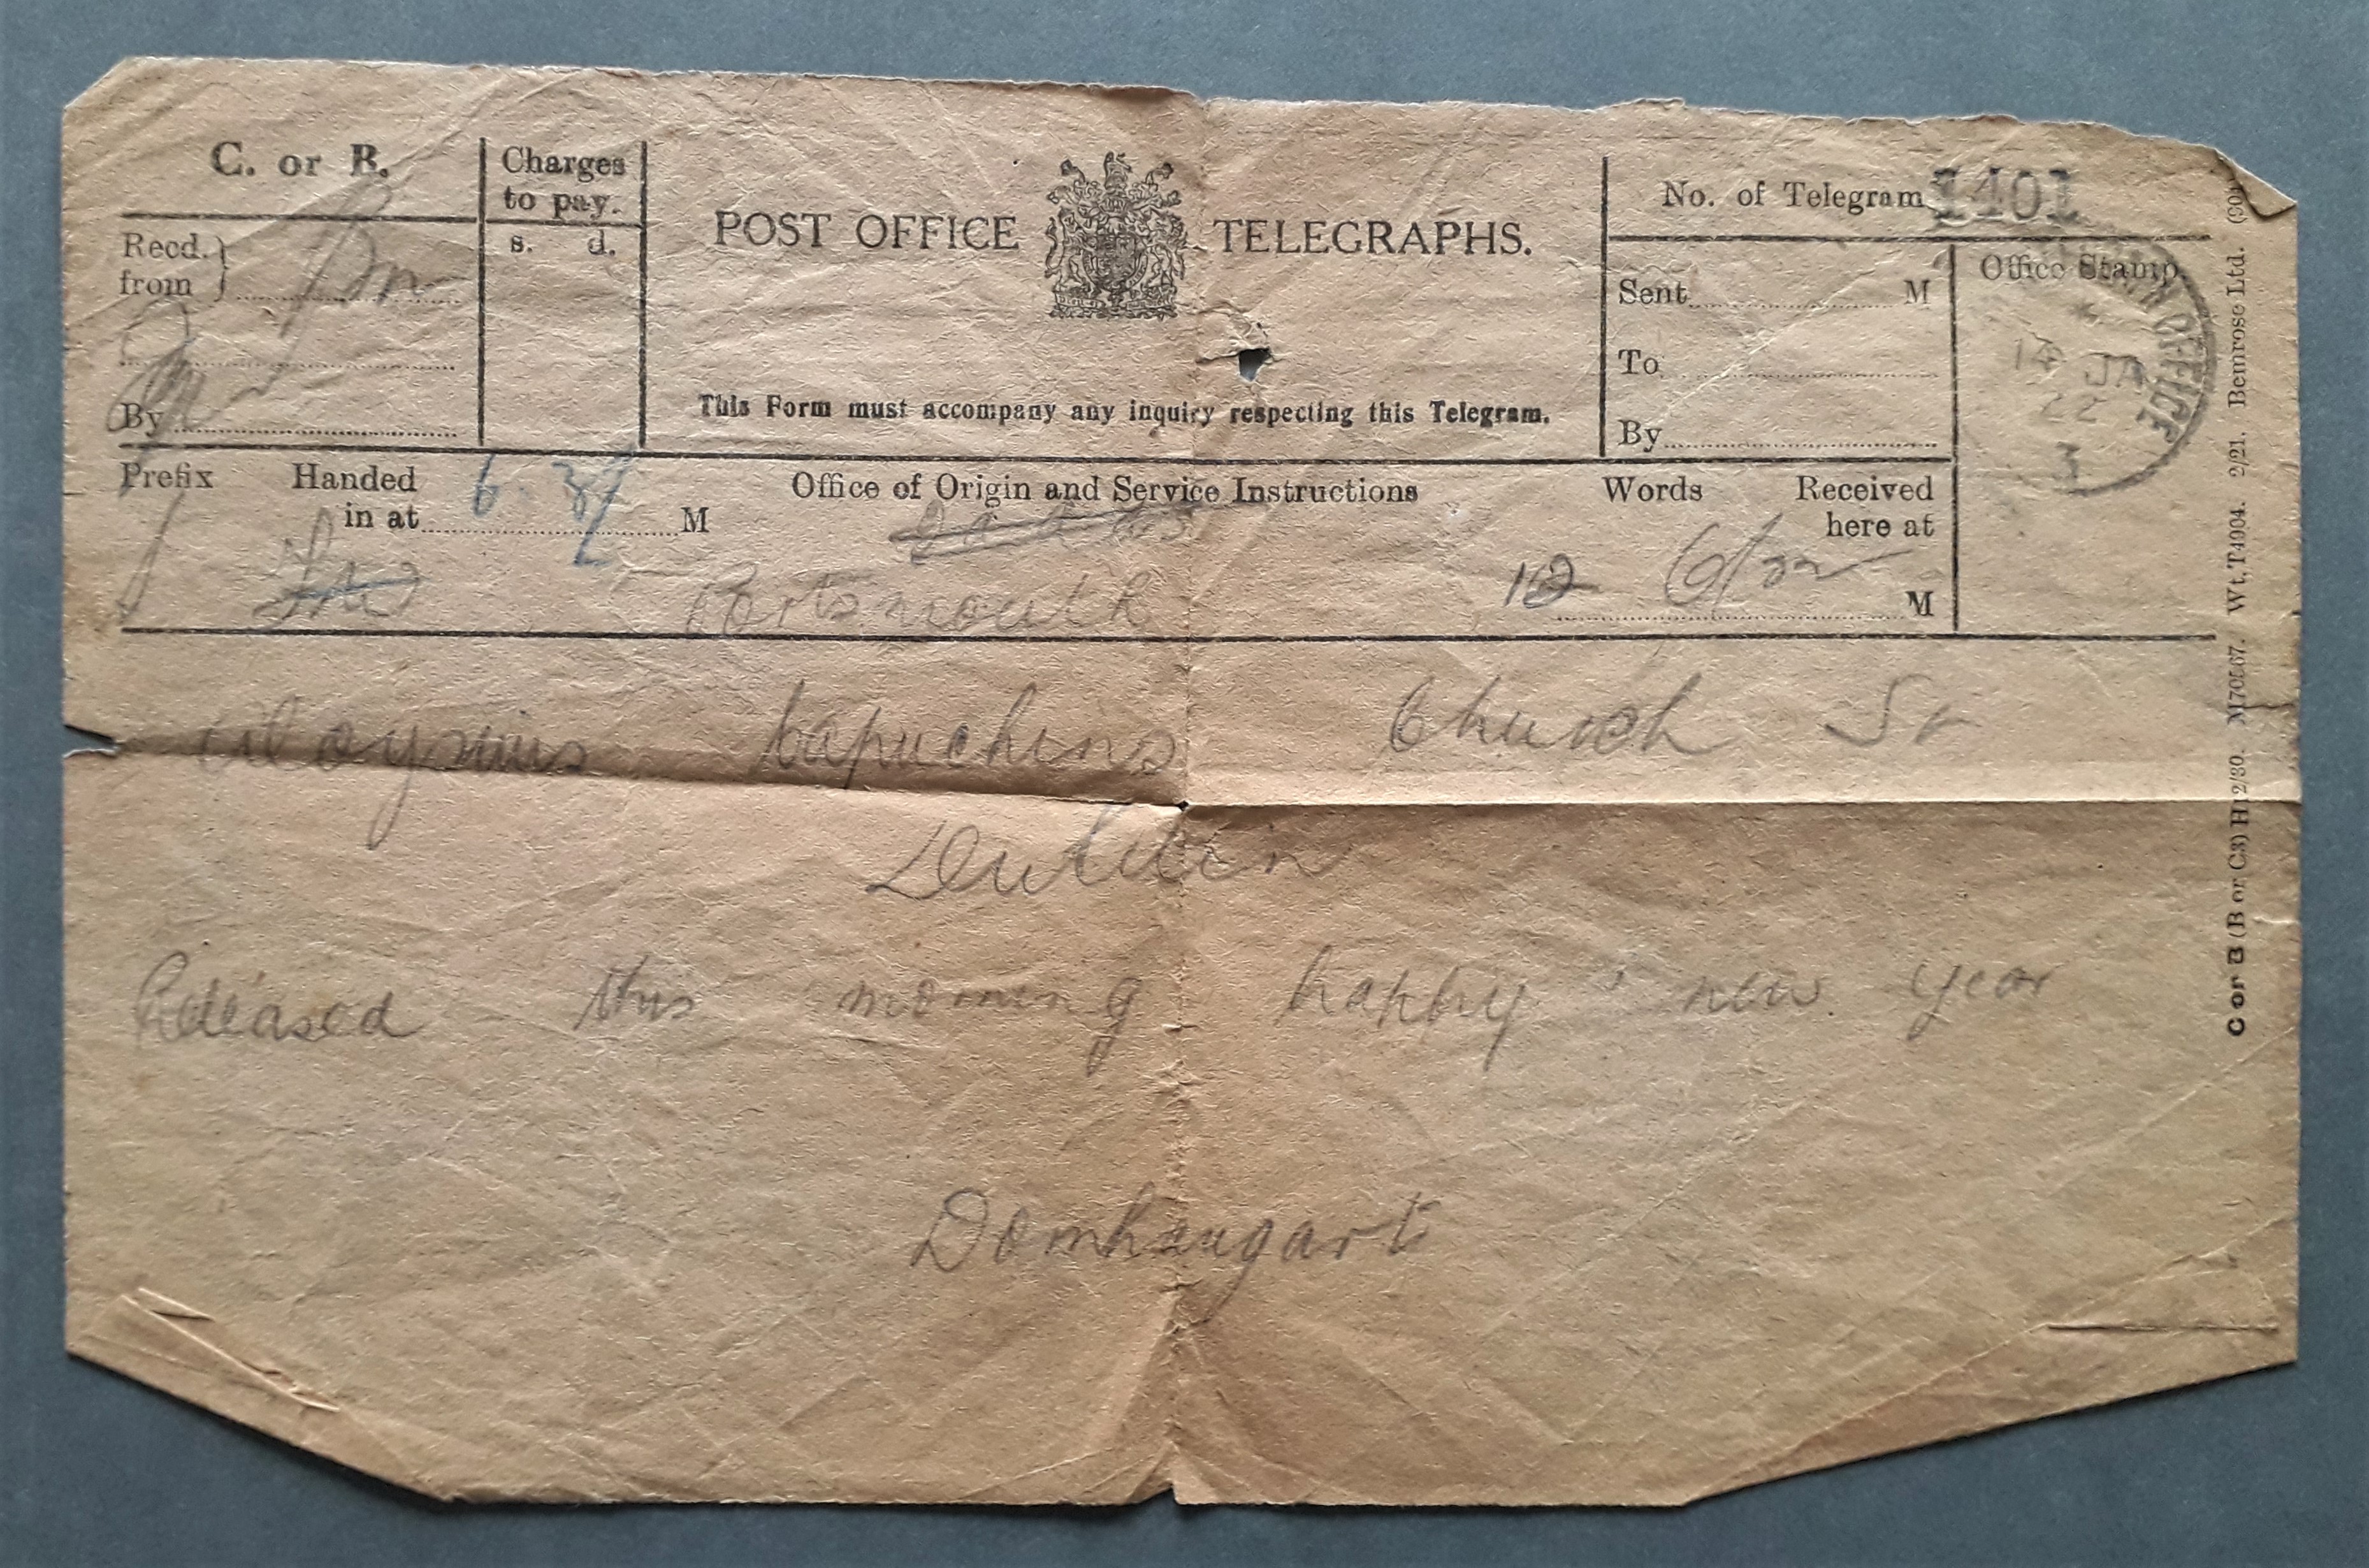 C. or B.
Charges
to pay.
s. d.
Recd.
from
By
POST OFFICE TELEGRAPHS.
This Form must accompany any inquiry respecting this Telegram.
No. of Telegram 1401
Sent M
To
By
Office Stamp.
OFFICE
14 JA
22
Prefix Handed
in at 6.37 M
Office of Origin and Service Instructions
Words Received
here at
Portsmouth
12
M
Aloysius Capuchins Church St
Dublin
Released this morning happy new year
Domhangart
C or B (B or C3) H12/30. M70567. Wt.T4004. 2/21. Bemrose Ltd.